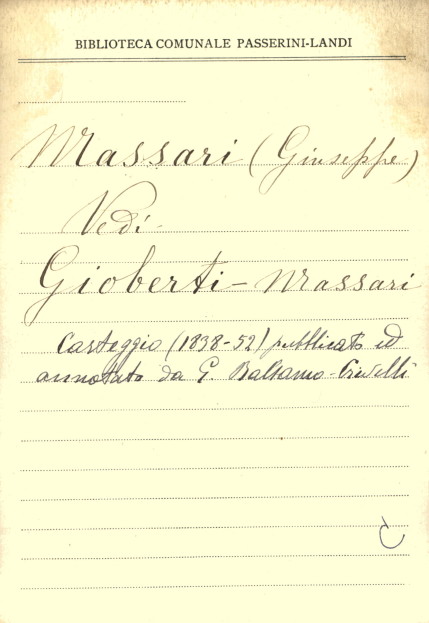 BIBLIOTECA COMUNALE PASSERINI-LANDI
Massari (Giuseppe)
Vedi
Gioberti - Massari
Carteggio (1838-52) pubblicato ed
annotato da G. Balsamo-Crivelli
C